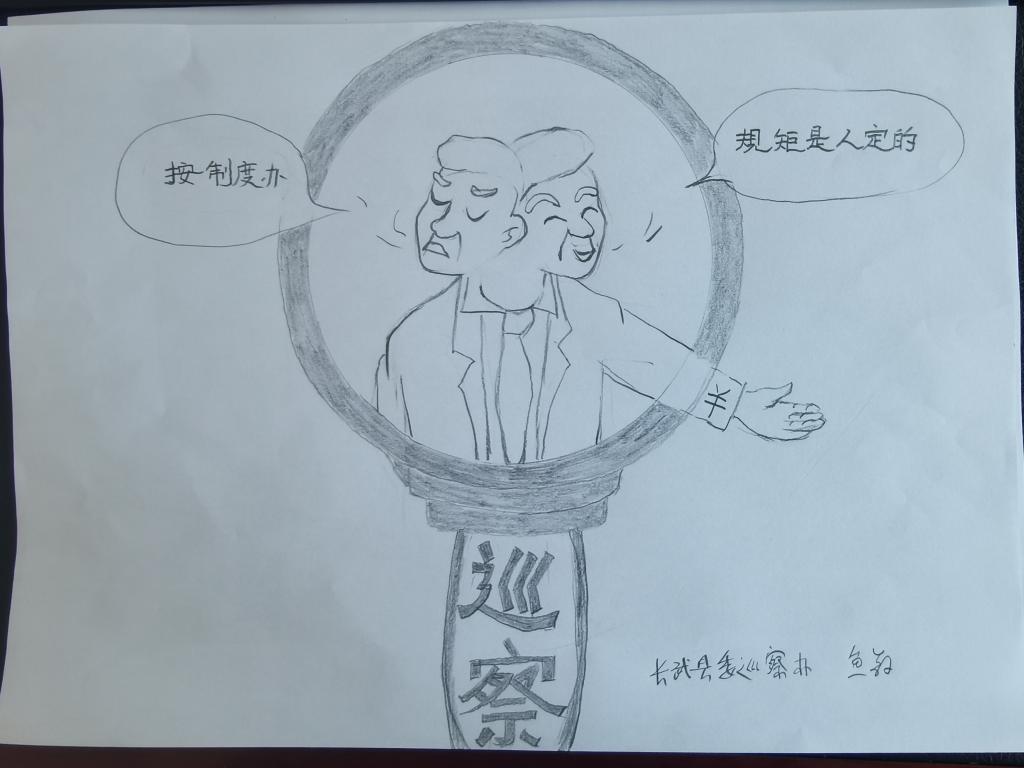 按制度办
规矩是人定的
¥
巡
察
长武县委巡察办 鱼敏